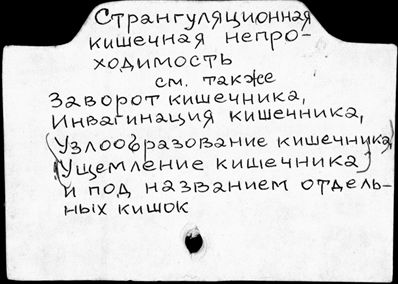 Странгуляционная
кишечная непро-
ходимость
см. также
Заворот кишечника,
Инвагинация кишечника,
(Узлообразование кишечника)
(Ущемление кишечника)
и под названием отдель-
ных кишок